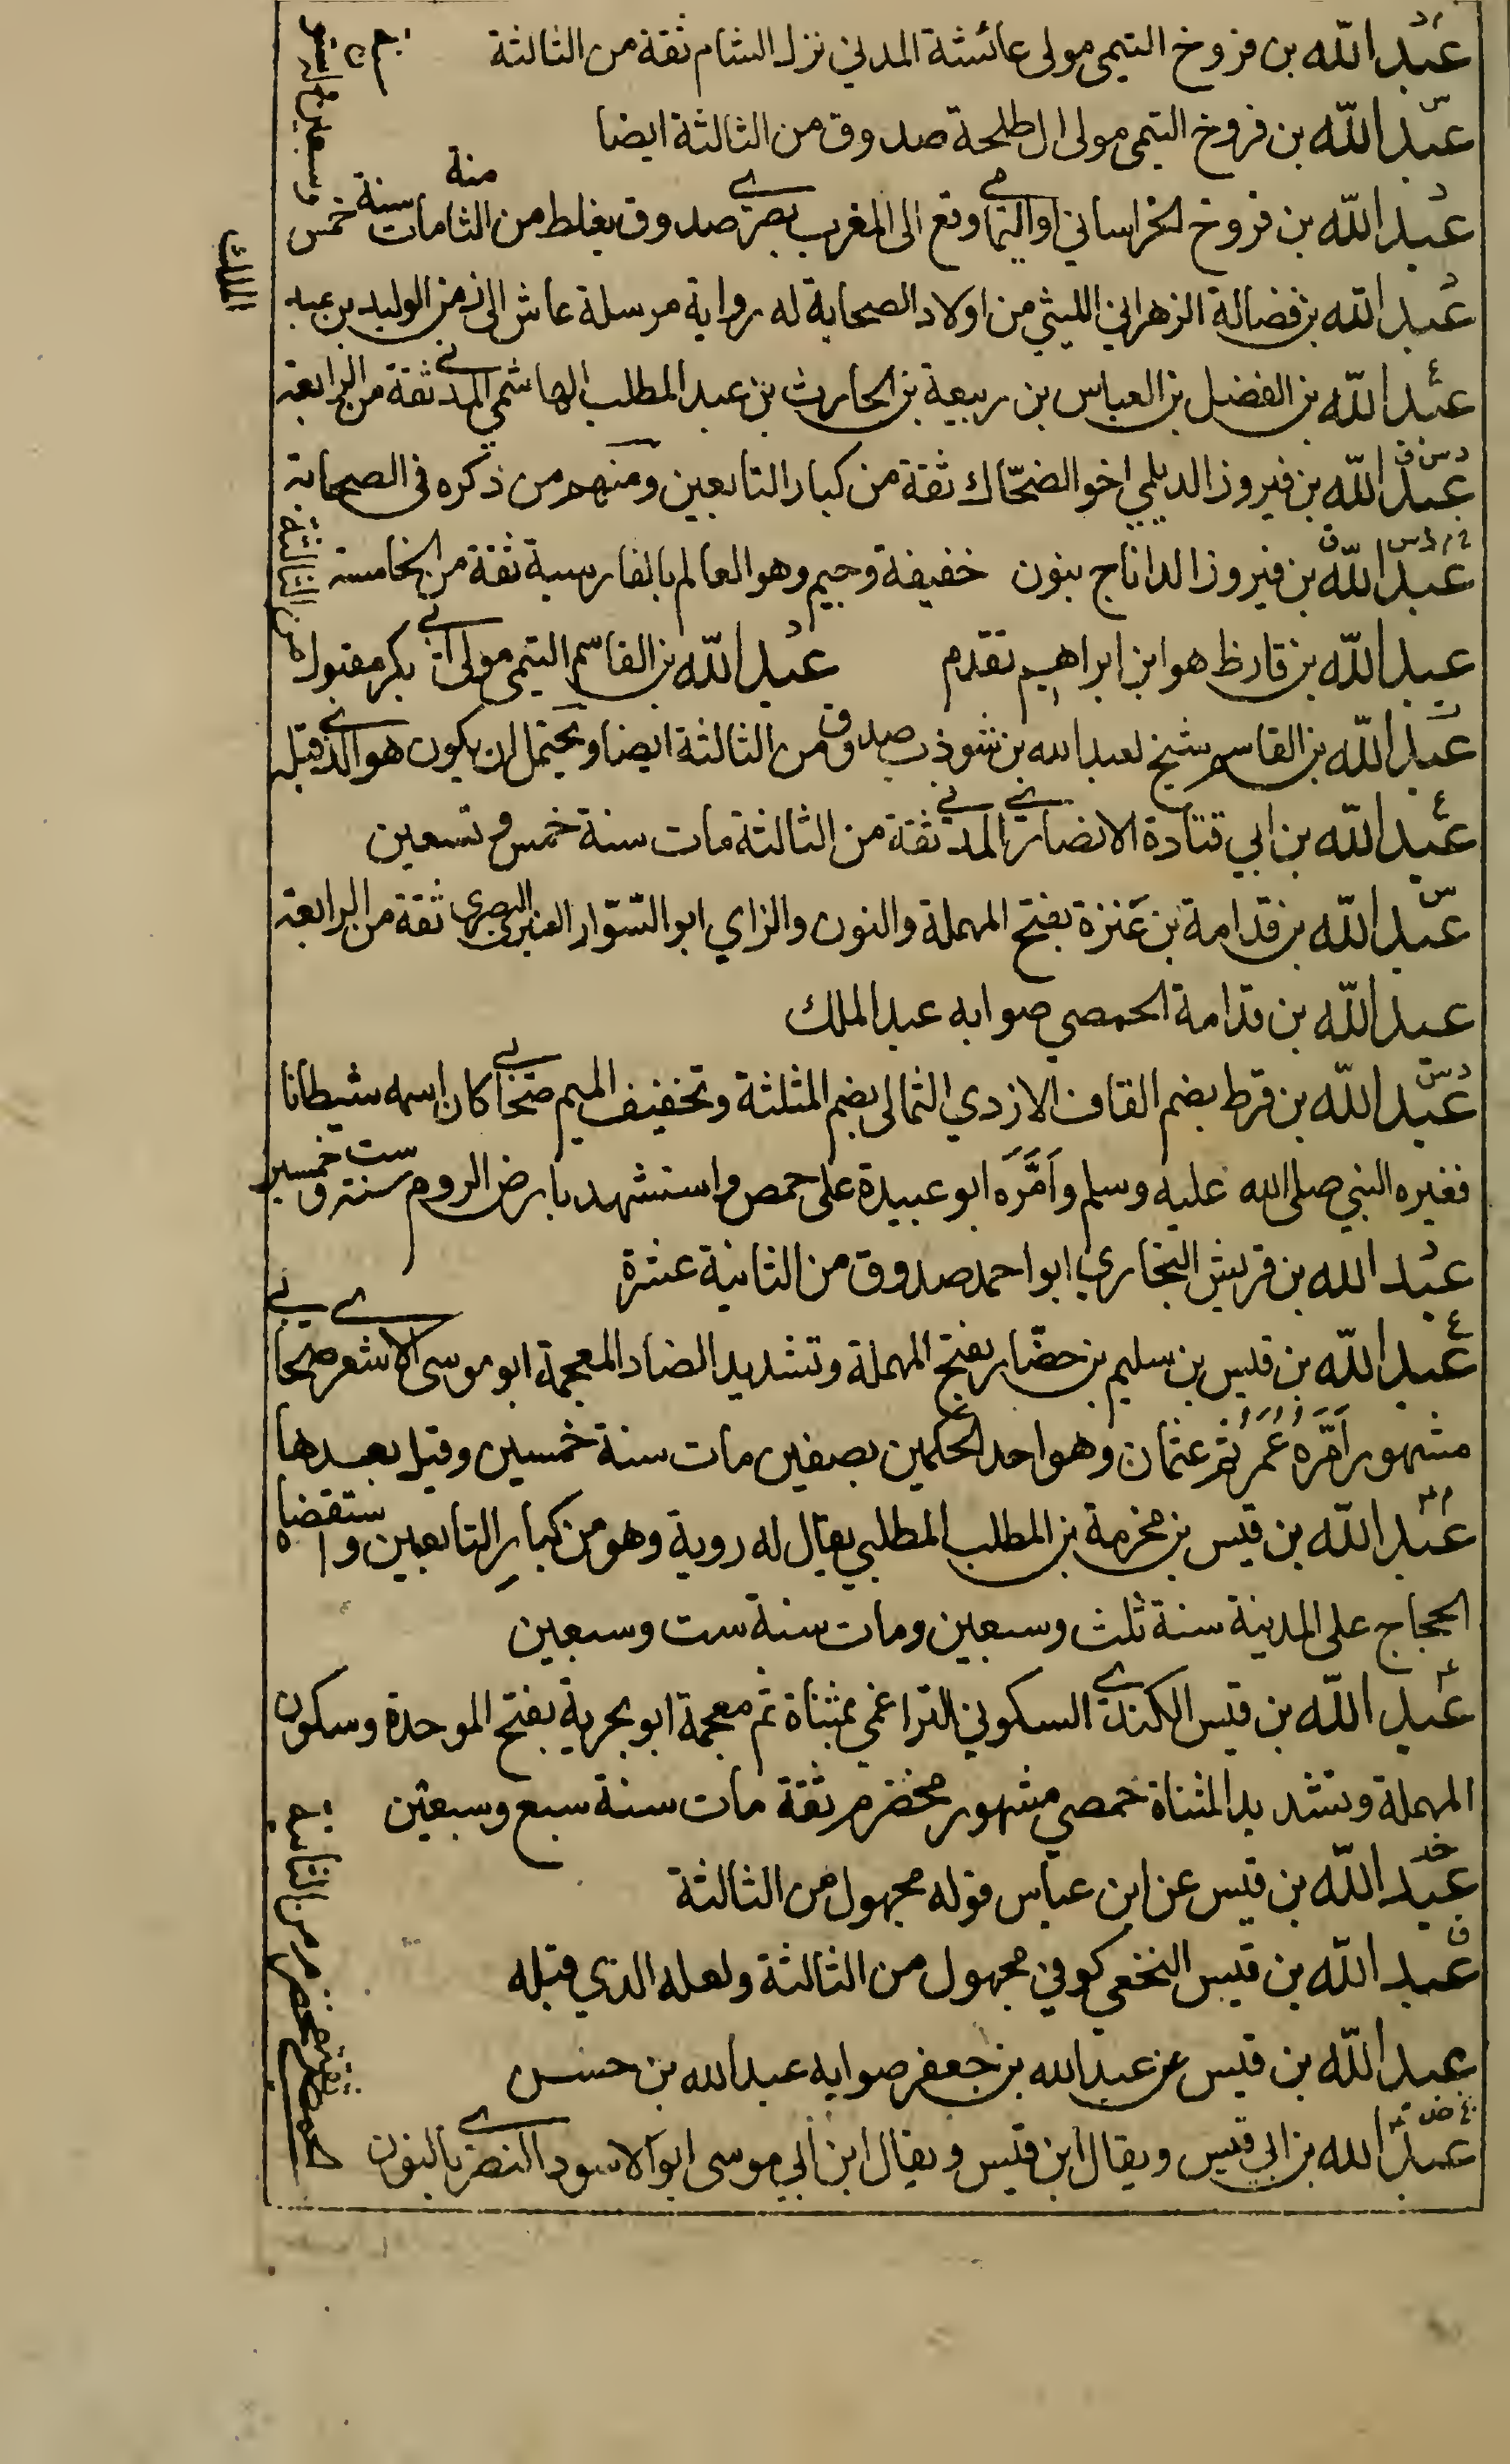 عبد الله بن فروخ التيمي مولى عائشة المدني نزل الشام ثقة من الثالثة
عبد الله بن فروخ التيمي مولى ال طلحة صدوق من الثالثة ايضا
عبد الله بن فروخ الخراساني او اليمامي وقع الى المغرب بصري صدوق يغلط من الثامنة مات سنة خمس
وسبعين
عبد الله بن فضالة الزهراني الليثي من اولاد الصحابة له رواية مرسلة عاش الى زمن الوليد بن عبد
الملك
عبد الله بن الفضل بن العباس بن ربيعة بن الحارث بن عبد المطلب الهاشمي المدني ثقة من الرابعة
د س ق
عبد الله بن فيروز الديلمي اخو الضحّاك ثقة من كبار التابعين ومنهم من ذكره في الصحابة
خ م د س ق
عبد الله بن فيروز الداناج بنون خفيفة وجيم وهو العالم بالفارسية ثقة من الخامسة
عبد الله بن قارظ هو ابن ابراهيم تقدم عبد الله بن القاسم التيمي مولى ابي بكر مقبول
من الثالثة
عبد الله بن القاسم شيخ لعبد الله بن شوذب صدوق من الثالثة ايضا ويحتمل ان يكون هو الذي قبله
ع
عبد الله بن ابي قتادة الانصاري المدني ثقة من الثالثة مات سنة خمس وتسعين
س
عبد الله بن قدامة بن عَنزة بفتح المهملة والنون والزاي ابو السّوّار العنبري البصري ثقة من الرابعة
عبد الله بن قدامة الحمصي صوابه عبد الملك
د س
عبد الله بن قرط بضم القاف الازدي الثمالي بضم المثلثة وتخفيف الميم صحابي كان اسمه شيطانا
فغيره النبي صلى الله عليه وسلم وَاَمَّرَه ابو عبيدة على حمص واستشهد بارض الروم سنة ست وخمسين
عبد الله بن قريش البخاري ابو احمد صدوق من الثانية عشرة
ع
عبد الله بن قيس بن سليم بن حضّار بفتح المهملة وتشديد الضاد المعجمة ابو موسى الاشعري صحابي
مشهور اَمَّرَه عُمَرُ ثم عثمان وهو احد الحكمين بصفين مات سنة خمسين وقيل بعدها
عبد الله بن قيس بن مخرمة بن المطلب المطلبي يقال له روية وهو من كبار التابعين واستقضاه
الحجاج على المدينة سنة ثلث وسبعين ومات سنة ست وسبعين
عبد الله بن قيس الكندي السكوني التراغمي بمثناة ثم معجمة ابو بحرية بفتح الموحدة وسكون
المهملة وتشديد المثناة حمصي مشهور مخضرم ثقة مات سنة سبع وسبعين
خد
عبد الله بن قيس عن ابن عباس قوله مجهول من الثالثة
ق
عبد الله بن قيس النخعي كوفي مجهول من الثالثة ولعله الذي قبله
عبد الله بن قيس عن عبد الله بن جعفر صوابه عبد الله بن حسن
عبد الله بن ابي قيس ويقال ابن قيس ويقال ابن ابي موسى ابو الاسود النصري بالنون
حمصي ثقة مخضرم من الثانية